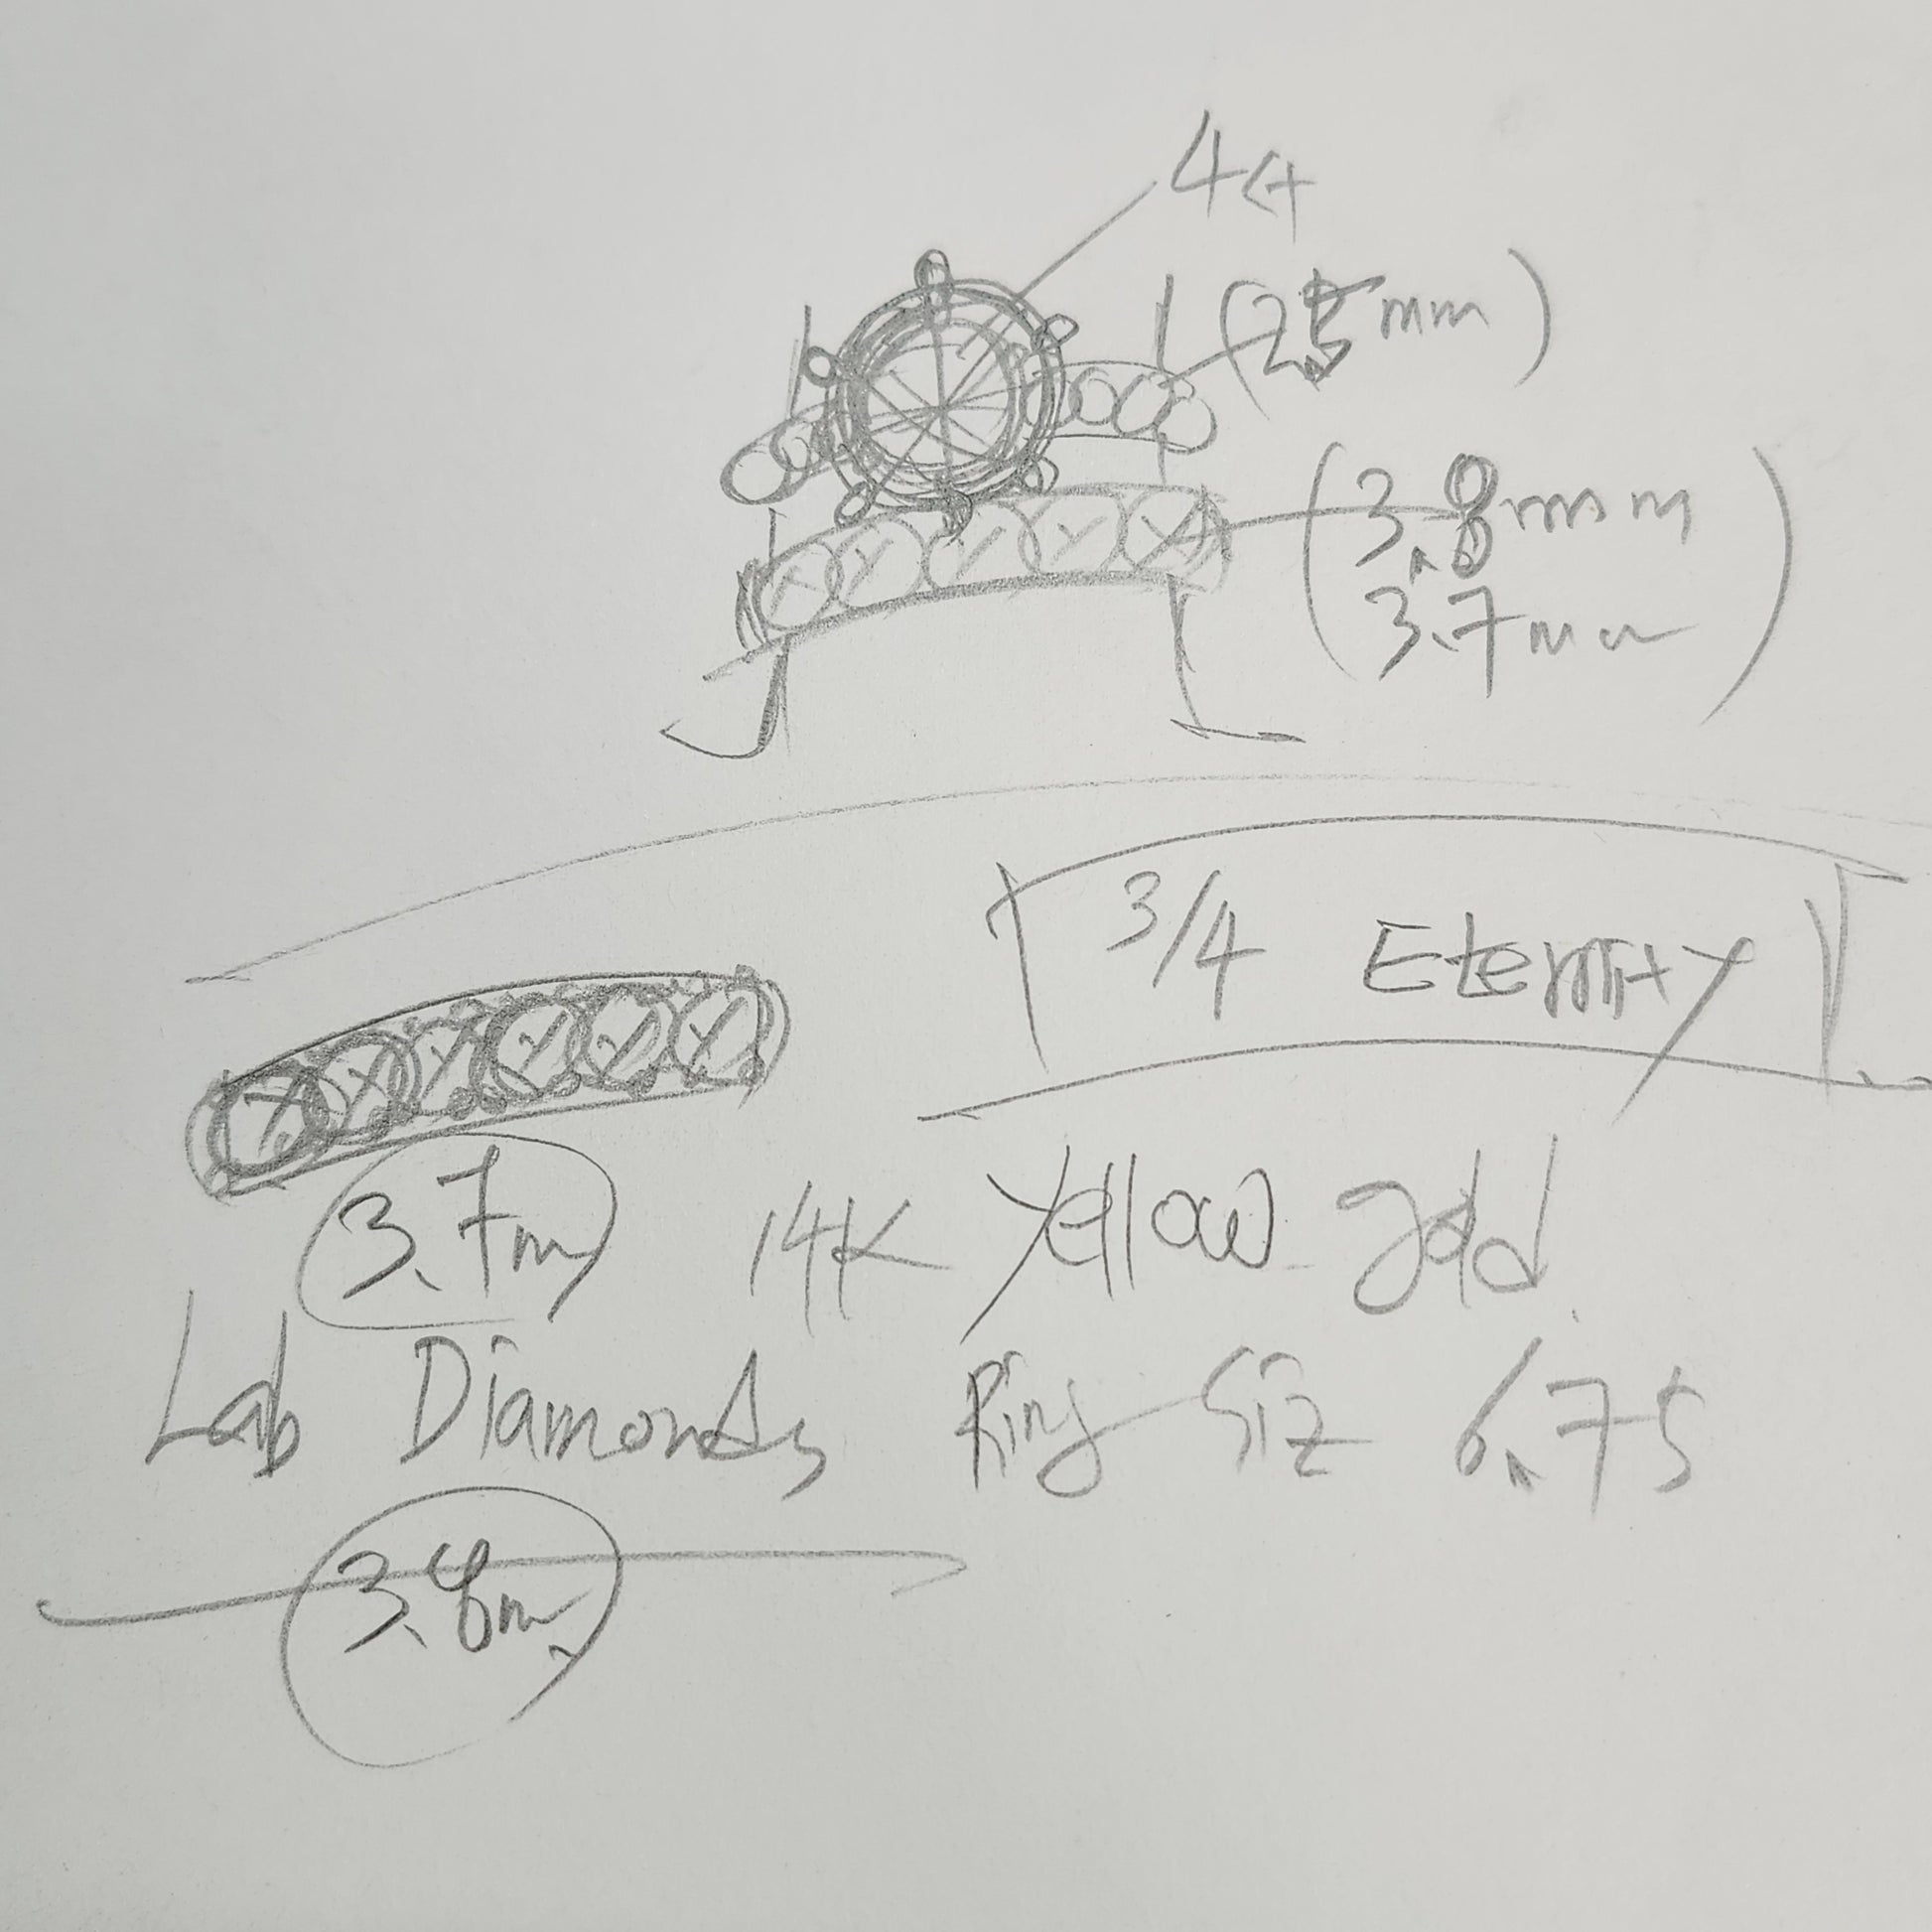 4ct
(2.5mm)
(3.8mm
3.7mm)
3/4 Eternity
3.7m 14K Yellow gold
Lab Diamonds Ring Siz 6.75
3.8m